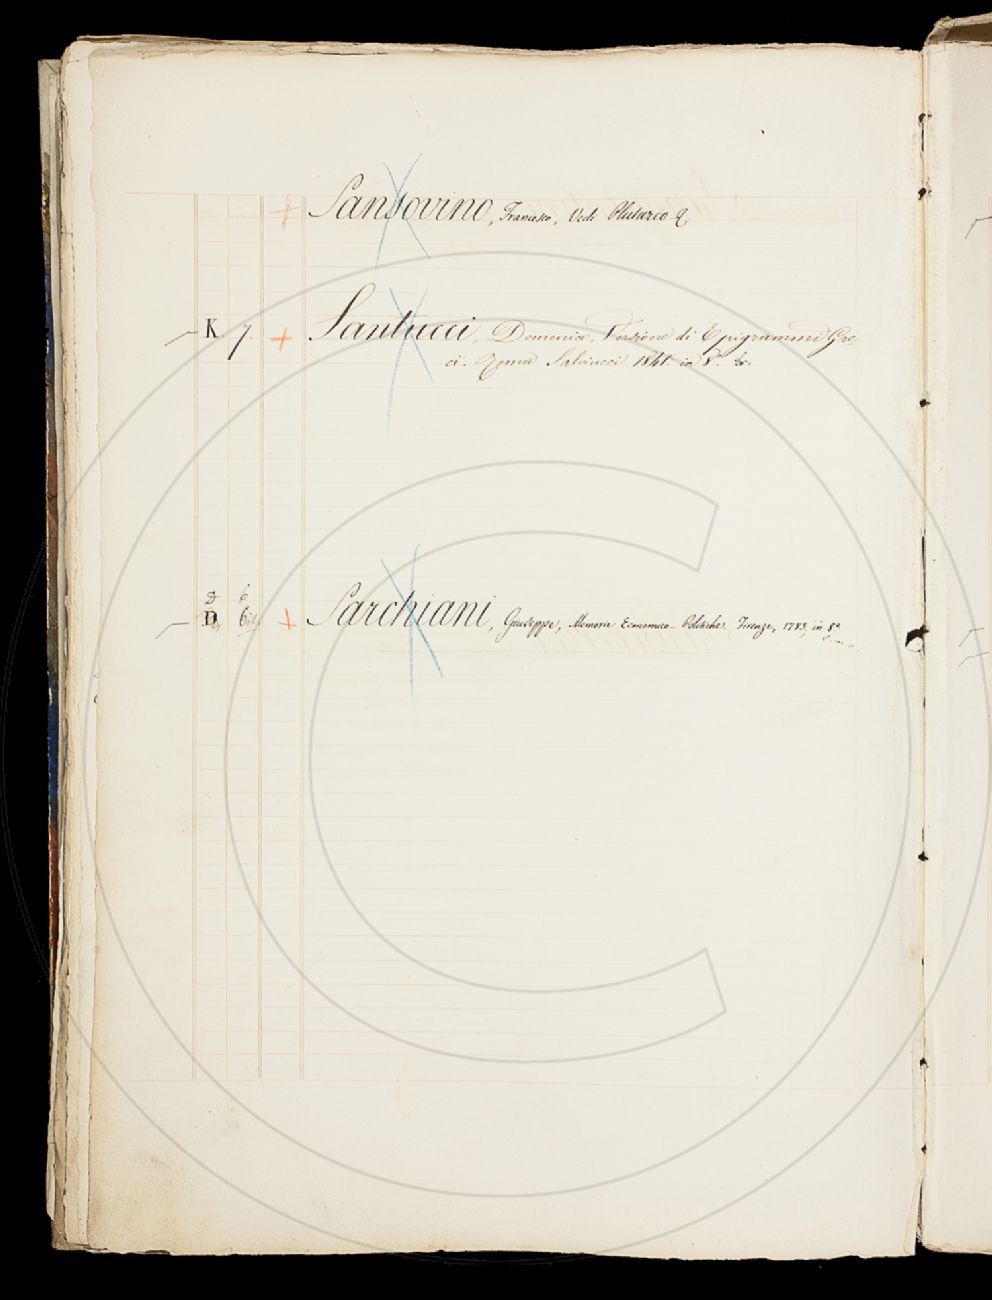 Sansovino, Francesco, Vedi Plutarco
K 7. Santucci, Domenico, Versione di Epigrammi Gre-
ci. Roma Salviucci 1841. in 8°. br.
D 6
D 6 Sarchiani, Giuseppe, Memorie Economico-Politiche. Firenze, 1783, in 8°